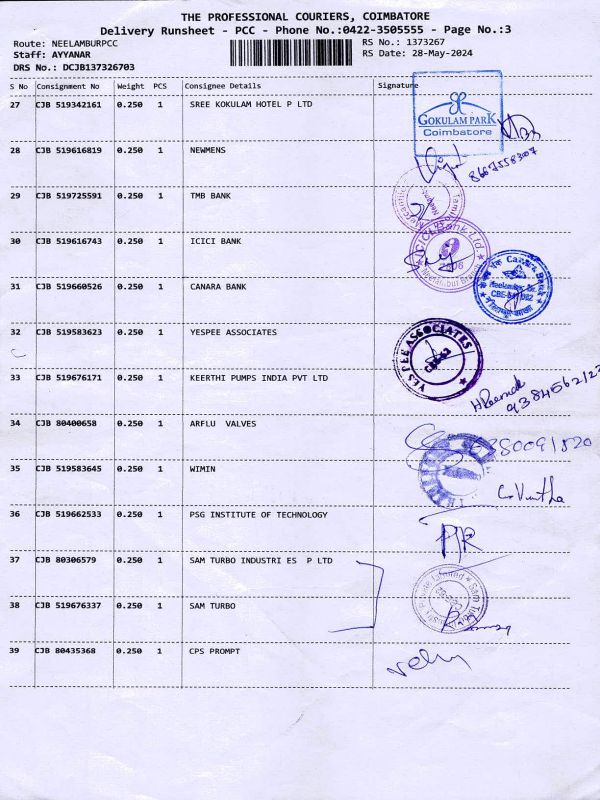 THE PROFESSIONAL COURIERS, COIMBATORE
Delivery Runsheet - PCC - Phone No.:0422-3505555 - Page No.:3
Route: NEELAMBURPCC RS No.: 1373267
Staff: AYYANAR RS Date: 28-May-2024
DRS No.: DCJB137326703
S No Consignment No Weight PCS Consignee Details Signature
27 CJB 519342161 0.250 1 SREE KOKULAM HOTEL P LTD
GOKULAM PARK
Coimbatore
28 CJB 519616819 0.250 1 NEWMENS
8667558307
29 CJB 519725591 0.250 1 TMB BANK
30 CJB 519616743 0.250 1 ICICI BANK
ICICI Bank Ltd
Neelambur Branch
31 CJB 519660526 0.250 1 CANARA BANK
Canara Bank
32 CJB 519583623 0.250 1 YESPEE ASSOCIATES
YES PEE ASSOCIATES
33 CJB 519676171 0.250 1 KEERTHI PUMPS INDIA PVT LTD
34 CJB 80400658 0.250 1 ARFLU VALVES
6380091820
35 CJB 519583645 0.250 1 WIMIN
36 CJB 519662533 0.250 1 PSG INSTITUTE OF TECHNOLOGY
37 CJB 80306579 0.250 1 SAM TURBO INDUSTRI ES P LTD
38 CJB 519676337 0.250 1 SAM TURBO
39 CJB 80435368 0.250 1 CPS PROMPT